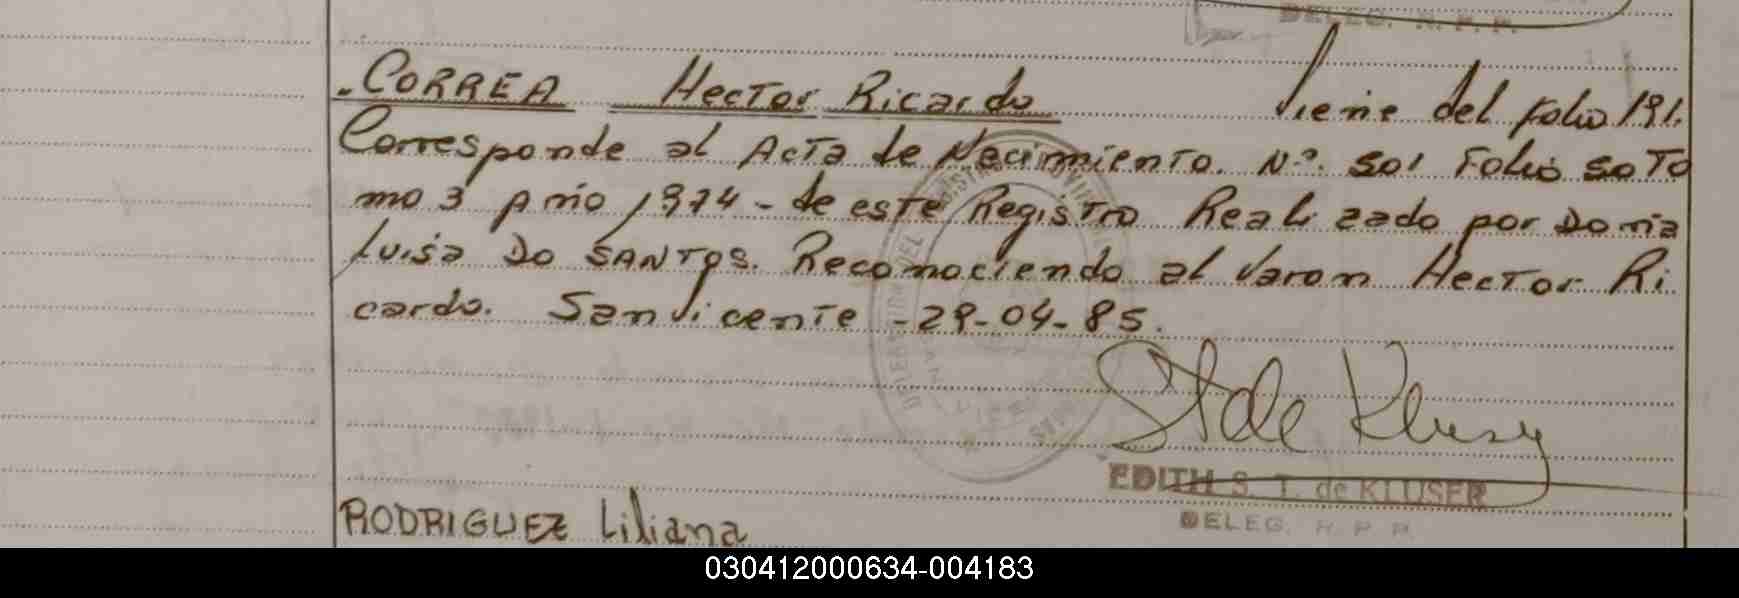 DELEG. R. P. P.
.CORREA Hector Ricardo Viene del Folio 191.
Corresponde al Acta de Necimiento. Nº. 501 Folio 50 To
mo 3 Año 1974 - de este Registro Reali zado por Doña
Luisa Do SANTOS. Reconociendo al Varon Hector Ri
cardo. San Vicente - 29-04-85.
EDITH S. T. de KLUSER
DELEG. R P P
RODRIGUEZ Liliana
030412000634-004183